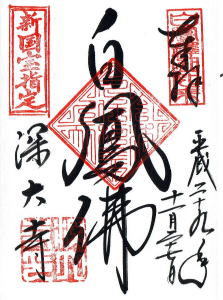 奉拝
平成二十九年
十一月二十七日
白鳳佛
新国宝指定
深大寺